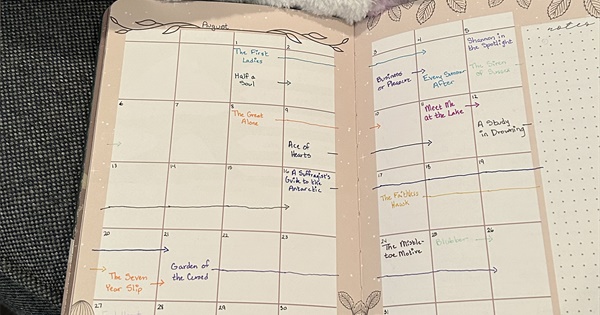 August
notes
1
2
3
4
5
The First
Ladies
Half a
Soul
Business
or Pleasure
Every Summer
After
Shannon in
the Spotlight
The Siren
of Sussex
6
7
8
9
10
11
12
The Great
Alone
Ace of
Hearts
Meet Me
at the Lake
A Study
in Drowning
13
14
15
16
17
18
19
A Suffragist's
Guide to the
Antarctic
The Faithless
Hawk
20
21
22
23
24
25
26
The Seven
Year Slip
Garden of
the Cursed
The Mistle-
toe Motive
27
28
29
30
31